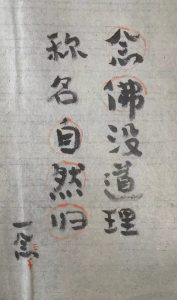 念佛没道理
称名自然归
一念